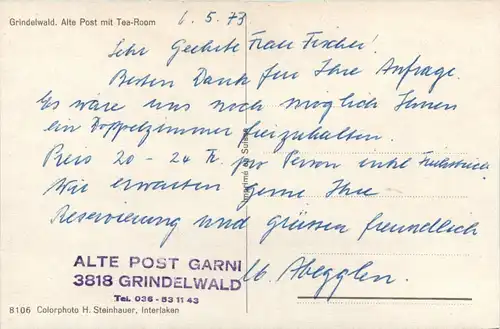 Grindelwald. Alte Post mit Tea-Room
6.5.73
Sehr Geehrte Frau Fischer!
Besten Dank für Ihre Anfrage.
Es wäre uns noch möglich Ihnen
ein Doppelzimmer freizuhalten.
Preis 20 - 24 Fr. pro Person inkl Frühstück
Wir erwarten gerne Ihre
Reservierung und grüssen freundlich
ALTE POST GARNI
3818 GRINDELWALD
Tel. 036 - 53 11 43
Abegglen.
Imprimé en Suisse
8106 Colorphoto H. Steinhauer, Interlaken